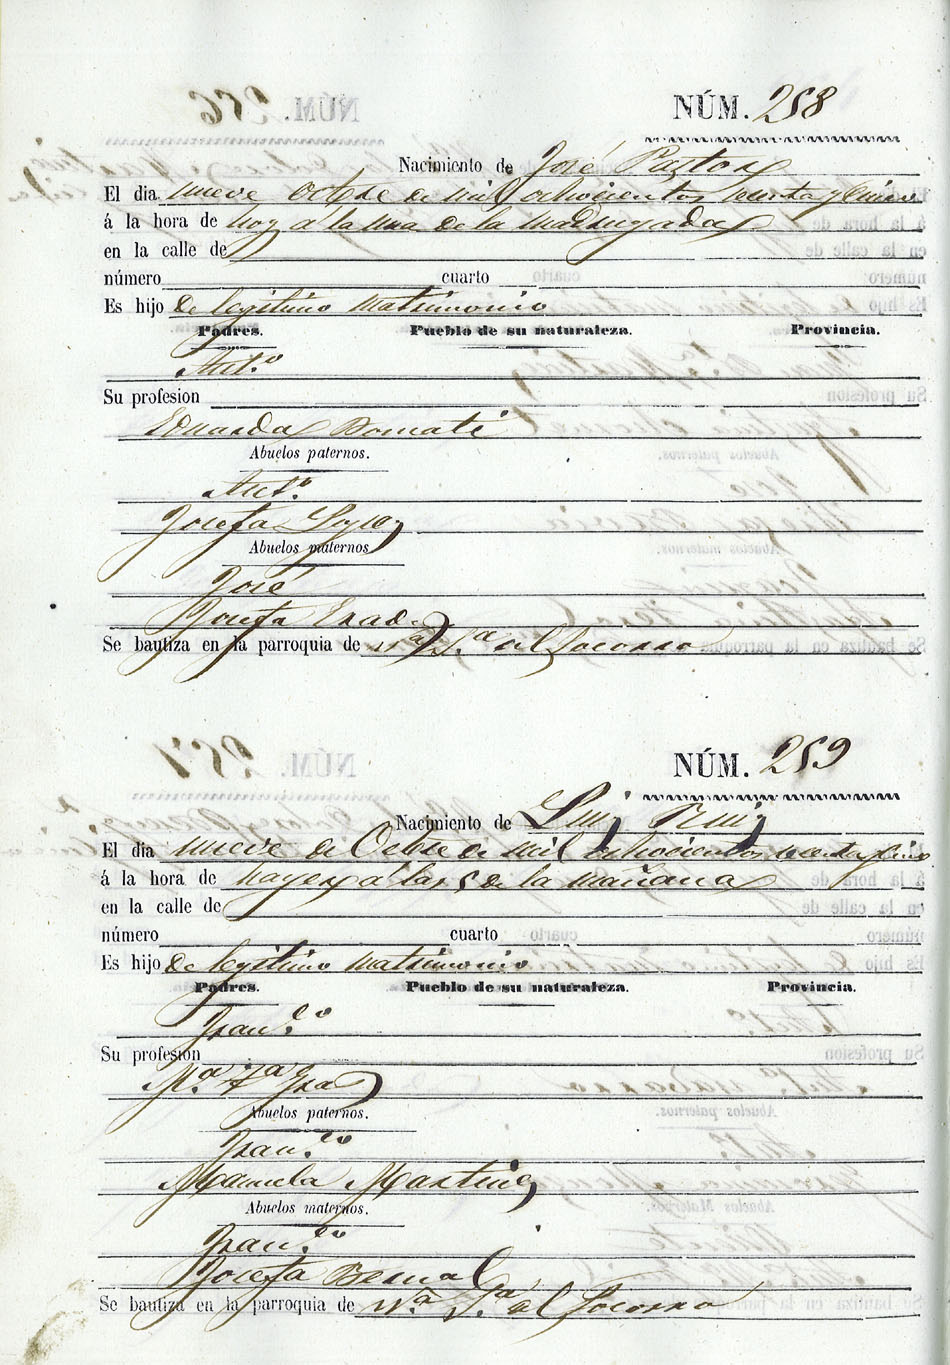 NÚM. 258
Nacimiento de José Pastor
El dia nueve Octbre de mil ochocientos sesenta y cinco
á la hora de hoy a la una de la madrugada
en la calle de
número cuarto
Es hijo de legitimo matrimonio
Padres. Pueblo de su naturaleza. Provincia.
Ant.º
Su profesion
Eduarda Bernate
Abuelos paternos.
Ant.º
Josefa Lopez
Abuelos maternos
José
Josefa
Se bautiza en la parroquia de Nª Sª del Socorro
NÚM. 259
Nacimiento de Luis Ruiz
El dia nueve de Octbre de mil ochocientos sesenta y cinco
á la hora de hayer a las 5 de la mañana
en la calle de
número cuarto
Es hijo de legitimo matrimonio
Padres. Pueblo de su naturaleza. Provincia.
Fran.co
Su profesion
M.ª
Abuelos paternos.
Fran.co
Manuela Martinez
Abuelos maternos.
Fran.co
Josefa Bernal
Se bautiza en la parroquia de Nª Sª del Socorro